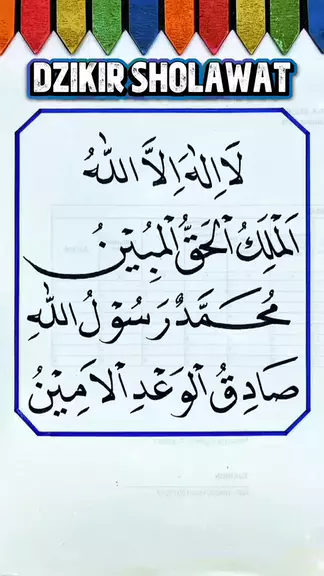 DZIKIR SHOLAWAT
لَا اِلٰهَ اِلَّا اللّٰهُ
اَلْمَلِكُ الْحَقُّ الْمُبِيْنُ
مُحَمَّدٌ رَسُوْلُ اللّٰهِ
صَادِقُ الْوَعْدِ الْاَمِيْنُ